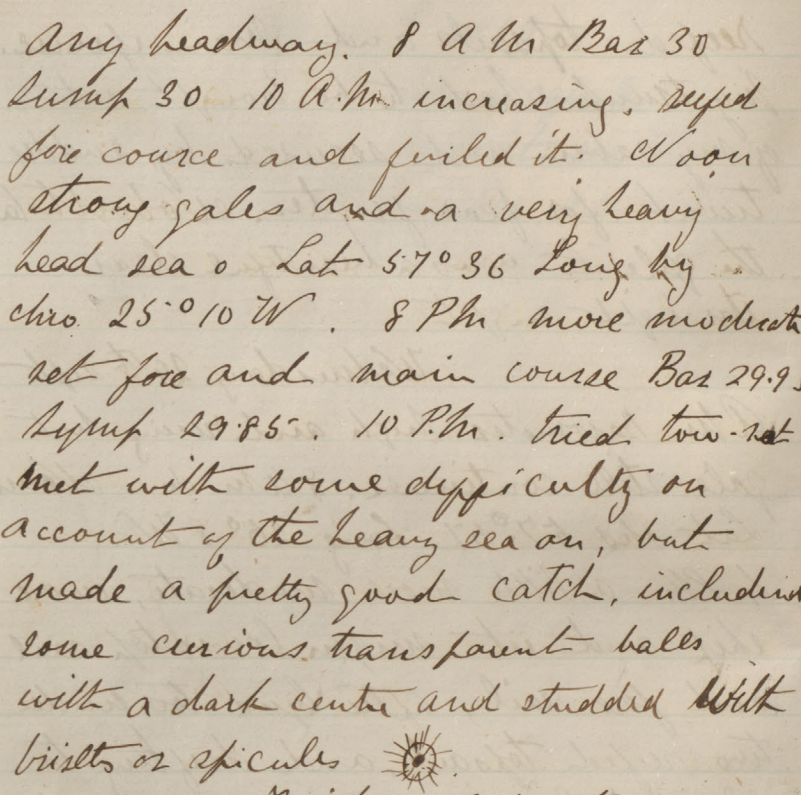 any headway. 8 A M Bar 30
Symp 30 10 A.M. increasing, reefed
fore course and furled it. Noon
strong gales and a very heavy
head sea o Lat 57° 36 Long by
chro 25° 10 W. 8 PM more moderate
set fore and main course Bar 29.9
Symp 29.85. 10 P.M. tried tow-net
met with some difficulty on
account of the heavy sea on, but
made a pretty good catch, including
some curious transparent balls
with a dark centre and studded with
or spicules